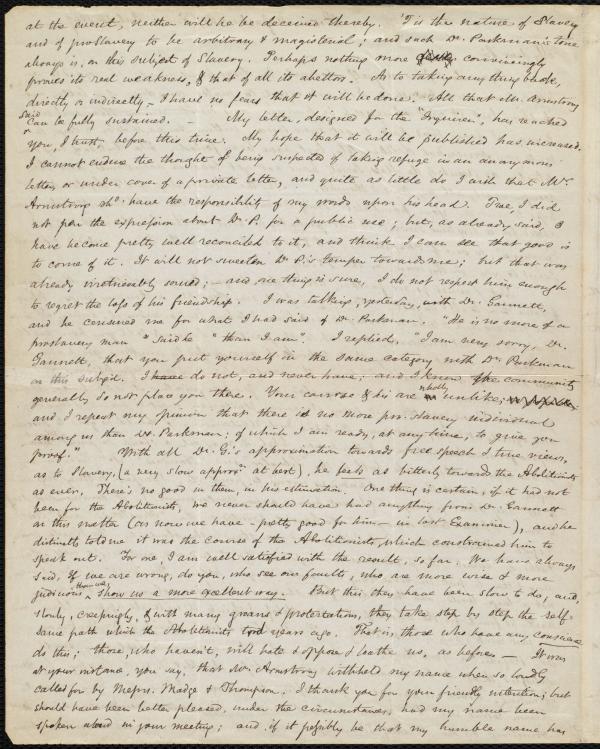 at the event, neither will he be deceived thereby. 'Tis the nature of Slavery
and of proslavery to be arbitrary & magisterial; and such Dr. Parkman's tone
always is, on this subject of Slavery. Perhaps nothing more convincingly
proves its real weakness, & that of all its abettors. As to taking anything back,
directly or indirectly, I have no fears that it will be done. All that Mr. Armstrong
said can be fully sustained. — My letter, designed for the "Inquirer", has reached
you, I trust, before this time. My hope that it will be published has increased.
I cannot endure the thought of being suspected of taking refuge in an anonymous
letter, or under cover of a private letter, and quite as little do I wish that Mr.
Armstrong shd. have the responsibility of my words upon his head. True, I did
not pen the expression about Dr. P. for a public use; but, as already said, I
have become pretty well reconciled to it, and think I can see that good is
to come of it. It will not sweeten Dr. P.'s temper towards me; but that was
already irretrievably soured; — and one thing is sure, I do not respect him enough
to regret the loss of his friendship. I was talking, yesterday, with Dr. Gannett,
and he censured me for what I had said of Dr. Parkman. "He is no more of a
proslavery man" said he "than I am". I replied, "I am very sorry, Dr.
Gannett, that you put yourself in the same category with Dr. Parkman
on this subject. I have do not, and never have; and I know the community
generally do not place you there. Your course & his are wholly unlike;
and I repeat my opinion that there is no more pro-slavery individual
among us than Dr. Parkman; of which I am ready, at any time, to give you
proof." With all Dr. G.'s approximation towards free speech & true views,
as to Slavery, (a very slow approxn. at best), he feels as bitterly towards the Abolitionists
as ever. There's no good in them, in his estimation. One thing is certain, if it had not
been for the Abolitionists, we never should have had anything from Dr. Gannett
on this matter (as now we have – pretty good for him – in last Examiner), and he
distinctly told me it was the course of the Abolitionists, which constrained him to
speak out. For one, I am well satisfied with the result, so far. We have always
said, If we are wrong, do you, who see our faults, who are more wise & more
judicious, show us a more excellent way. But this they have been slow to do; and,
slowly, creepingly, & with many groans & protestations, they take step by step the self-
same path which the Abolitionists trod years ago. That is, those who have any conscience
do this; those, who haven't, will hate & oppose & loathe us, as before. — It was
at your instance, you say, that Mr. Armstrong withheld my name when so loudly
called for by Messrs. Madge & Thompson. I thank you for your friendly intention; but
should have been better pleased, under the circumstances, had my name been
spoken aloud in your meeting; and if it possibly be that my humble name has